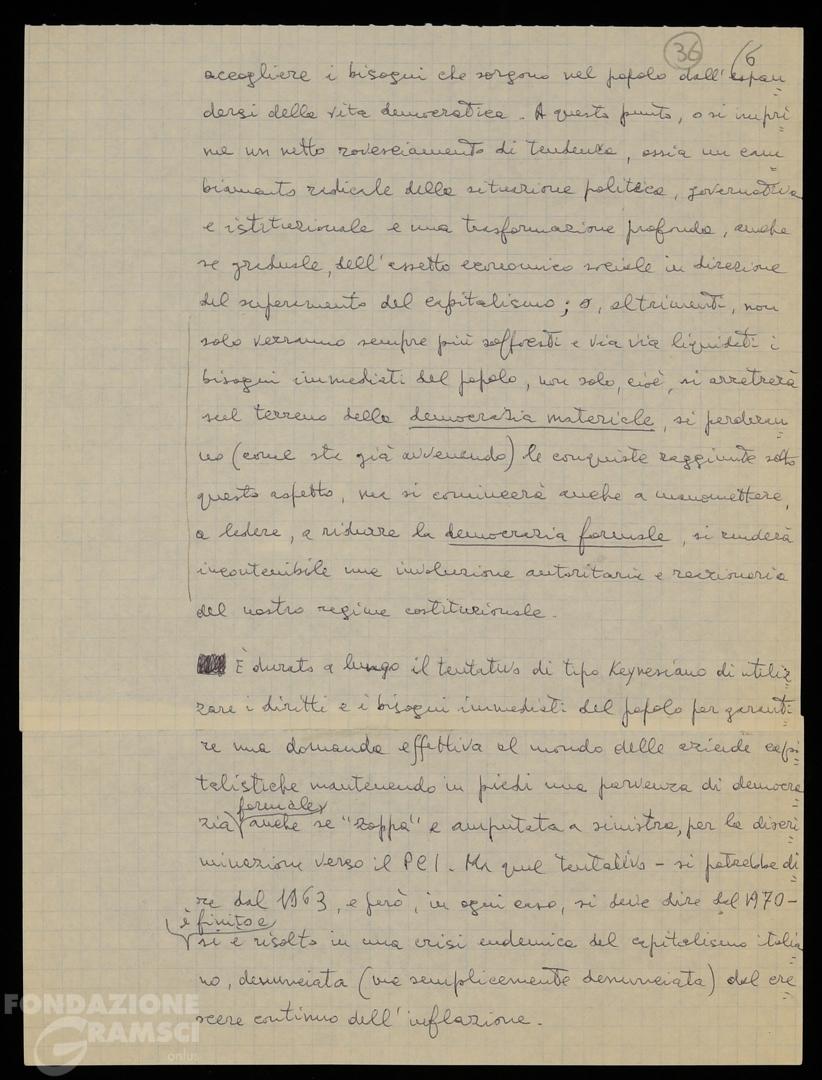 36
(6
accogliere i bisogni che sorgono nel popolo dall'espan=
dersi della vita democratica. A questo punto, o si impri=
me un netto rovesciamento di tendenza, ossia un cam=
biamento radicale della situazione politica, governativa
e istituzionale e una trasformazione profonda, anche
se graduale, dell'assetto economico sociale in direzione
del superamento del capitalismo; o, altrimenti, non
solo verranno sempre più soffocati e via via liquidati i
bisogni immediati del popolo, non solo, cioè, si arretrerà
sul terreno della democrazia materiale, si perderan=
no (come sta già avvenendo) le conquiste raggiunte sotto
questo aspetto, ma si comincerà anche a manomettere,
a ledere, a ridurre la democrazia formale, si renderà
incontenibile una involuzione autoritaria e reazionaria
del nostro regime costituzionale.
È durato a lungo il tentativo di tipo Keynesiano di utiliz=
zare i diritti e i bisogni immediati del popolo per garanti=
re una domanda effettiva al mondo delle aziende capi=
talistiche mantenendo in piedi una parvenza di democra=
zia formale, anche se "zoppa" e amputata a sinistra, per la discri=
minazione verso il PCI. Ma quel tentativo – si potrebbe di=
re dal 1963, e però, in ogni caso, si deve dire dal 1970 –
è finito e si è risolto in una crisi endemica del capitalismo italia=
no, denunciata (ma semplicemente denunciata) dal cre=
scere continuo dell'inflazione.
FONDAZIONE
GRAMSCI
onlus